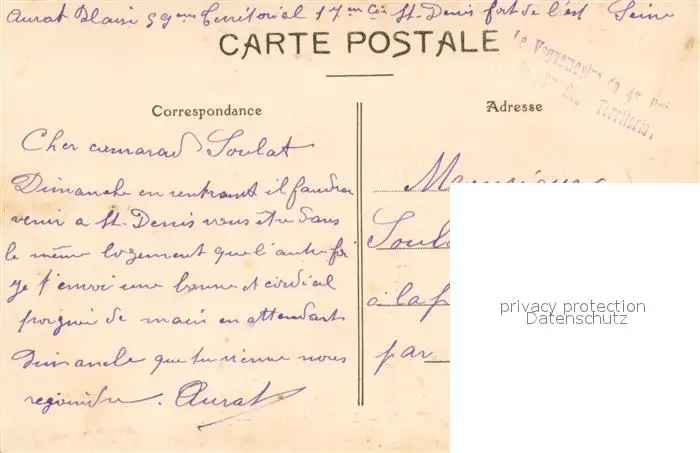 Aurat Blaise 59em Territorial 17em Cie St-Denis fort de l'est Seine
CARTE POSTALE
Le Vaguemestre du 4e
Territorial
Correspondance
Adresse
Cher cumarad Soulat
Dimanche en rentrant il faudra
venir a St. Denis vous être dans
le même logement que l'autre foi
je t'envoi une bonne et cordial
poignée de main en attendant
dimanche que tu vienne nous
rejoindre. Aurat
Monsieur
Soul
à la f
par
privacy protection
Datenschutz